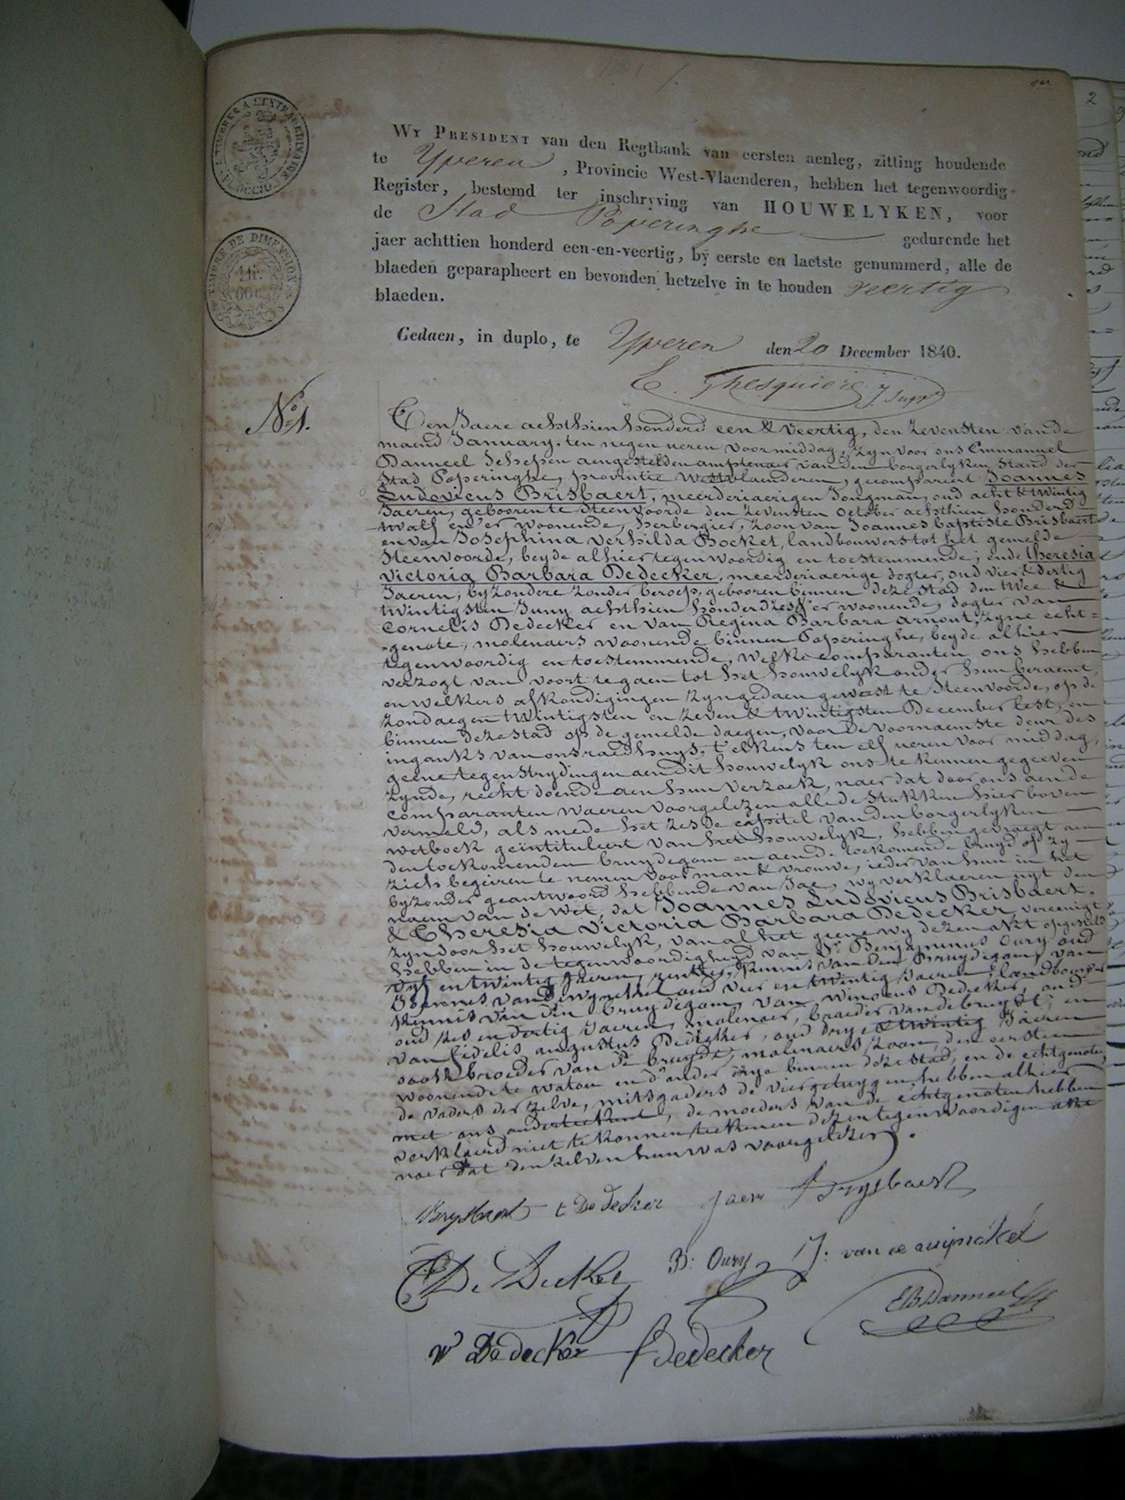 WY PRESIDENT van den Regtbank van eersten aenleg, zitting houdende
te Yperen, Provincie West-Vlaenderen, hebben het tegenwoordig
Register, bestemd ter inschryving van HOUWELYKEN, voor
de Stad Poperinghe gedurende het
jaer achttien honderd een-en-veertig, by eerste en laetste genummerd, alle de
blaeden geparapheert en bevonden hetzelve in te houden veertig
blaeden.
Gedaen, in duplo, te Yperen den 20 December 1840.
No 1.
Den Jaere achthien honderd een & veertig, den zevensten van de
maend January, ten negen ueren voormiddag, zyn voor ons Emmanuel
Danneel Schepen aengestelden amptenaer van den borgerlyken Stand der
Stad Poperinghe, provintie Westvlaenderen, gecompareert Joannes
Ludovicus Brisbaert, meerderiaerigen Jongman, oud acht & twintig
Jaeren, geboren te Steenvoorde den zevensten October achthien honderd
twalf en er woonende, herbergier, zoon van Joannes baptiste Brisbaert
en van Josephina verhilda Bocket, landbouwers tot het gemelde
Steenvoorde, beyde alhier tegenwoordig en toestemmende; ende theresia
victoria Barbara Dedecker, meerderiaerige dogter, oud vier & dertig
Jaeren, byzondere zonder beroep, gebooren binnen deze stad den twee &
twintigsten Juny achthien honderd zes, er woonende, dogter van
Cornelis Dedecker en van Regina Barbara arnout, zyne echt-
genote, molenaers woonende binnen Poperinghe, beyde alhier
tegenwoordig en toestemmende, welke comparanten ons hebben
verzogt van voort te gaen tot het houwelyk onder hun beraemt,
en welkers afkondigingen zyn gedaen geweest te Steenvoorde, op de
zondaegen twintigsten en zeven & twintigsten December lest, en
binnen deze stad op de gemelde daegen, voor de voornaemste deur des
inganks van ons raedhuys, t'elkens ten elf ueren voor middag,
geene tegenstrydingen aen dit houwelyk ons te kennen gegeeven
zynde, recht doende aen hun verzoek, naer dat door ons aen de
comparanten waeren voorgelezen alle de stukken hier boven
vermeld, als mede het zesde capitel van den borgerlyken
wetboek geïntituleert van het houwelyk, hebben gevraegt aen
den toekomenden bruydegom en aen de toekomende bruyd of zy
zich begeiren te nemen voor man & vrouwe, ieder van hun in het
byzonder geantwoord hebbende van Jae, wy verklaeren uyt den
naem van de wet, dat Joannes Ludovicus Brisbaert
& Theresia Victoria Barbara Dedecker, vereenigt
zyn door het houwelyk, van al het geene wy dezen akt opgesteld
hebben in de tegenwoordigheyd van Sr Benjaminus Oury oud
vyf en twintig Jaeren, kennis van den Bruydegom, van
Joannes van oud vier en twintig Jaeren, landbouwer
kennis van den bruydegom, van Winocus Dedecker, oud
oud zes en dertig Jaeren, molenaer, broeder van de bruydt; en
van fidelis augustus Dedecker, oud dry & twintig Jaeren
oook broeder van de bruydt, molenaers zoon, den eersten
woonende te watou en d'ander drye binnen deze stad, en de echtgenoten,
de vaders der zelve, mitsgaders de vier getuygen, hebben alhier
met ons onderteekent, de moeders van de echtgenoten hebben
verklaerd niet te konnen teekenen dezen tegenwoordigen akte
naer dat den zelven hun was voorgelezen.
Brysbaert t De decker Jaen Brysbaert
CDe Decker B: Oury J: van de
EBDanneel
W Dedecker F Dedecker
2